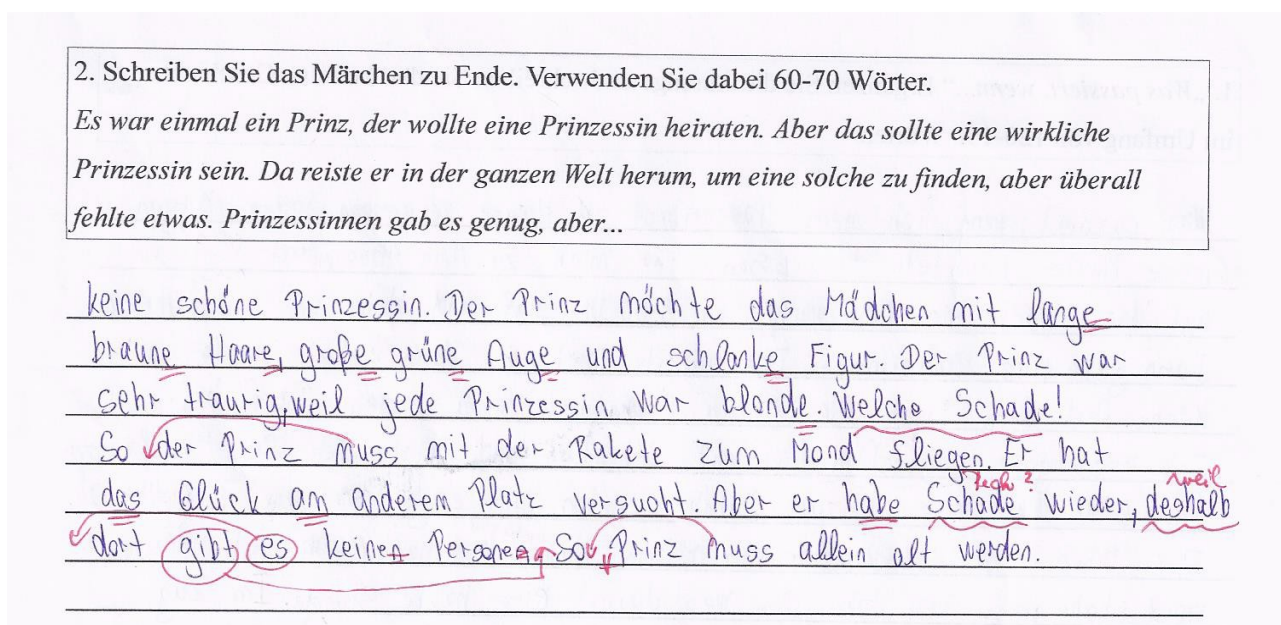 2. Schreiben Sie das Märchen zu Ende. Verwenden Sie dabei 60-70 Wörter.
Es war einmal ein Prinz, der wollte eine Prinzessin heiraten. Aber das sollte eine wirkliche
Prinzessin sein. Da reiste er in der ganzen Welt herum, um eine solche zu finden, aber überall
fehlte etwas. Prinzessinnen gab es genug, aber...
keine schöne Prinzessin. Der Prinz möchte das Mädchen mit lange
braune Haare, große grüne Auge und schlanke Figur. Der Prinz war
sehr traurig, weil jede Prinzessin war blonde. Welche Schade!
So der Prinz muss mit der Rakete zum Mond fliegen. Er hat
weil
das Glück am anderem Platz versucht. Aber er habe Schade wieder, deshalb
dort gibt es keinen Personen. So Prinz muss allein alt werden.